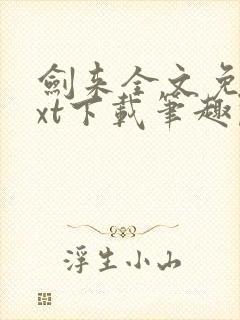 劍来全文免
xt下載筆趣
浮生小山